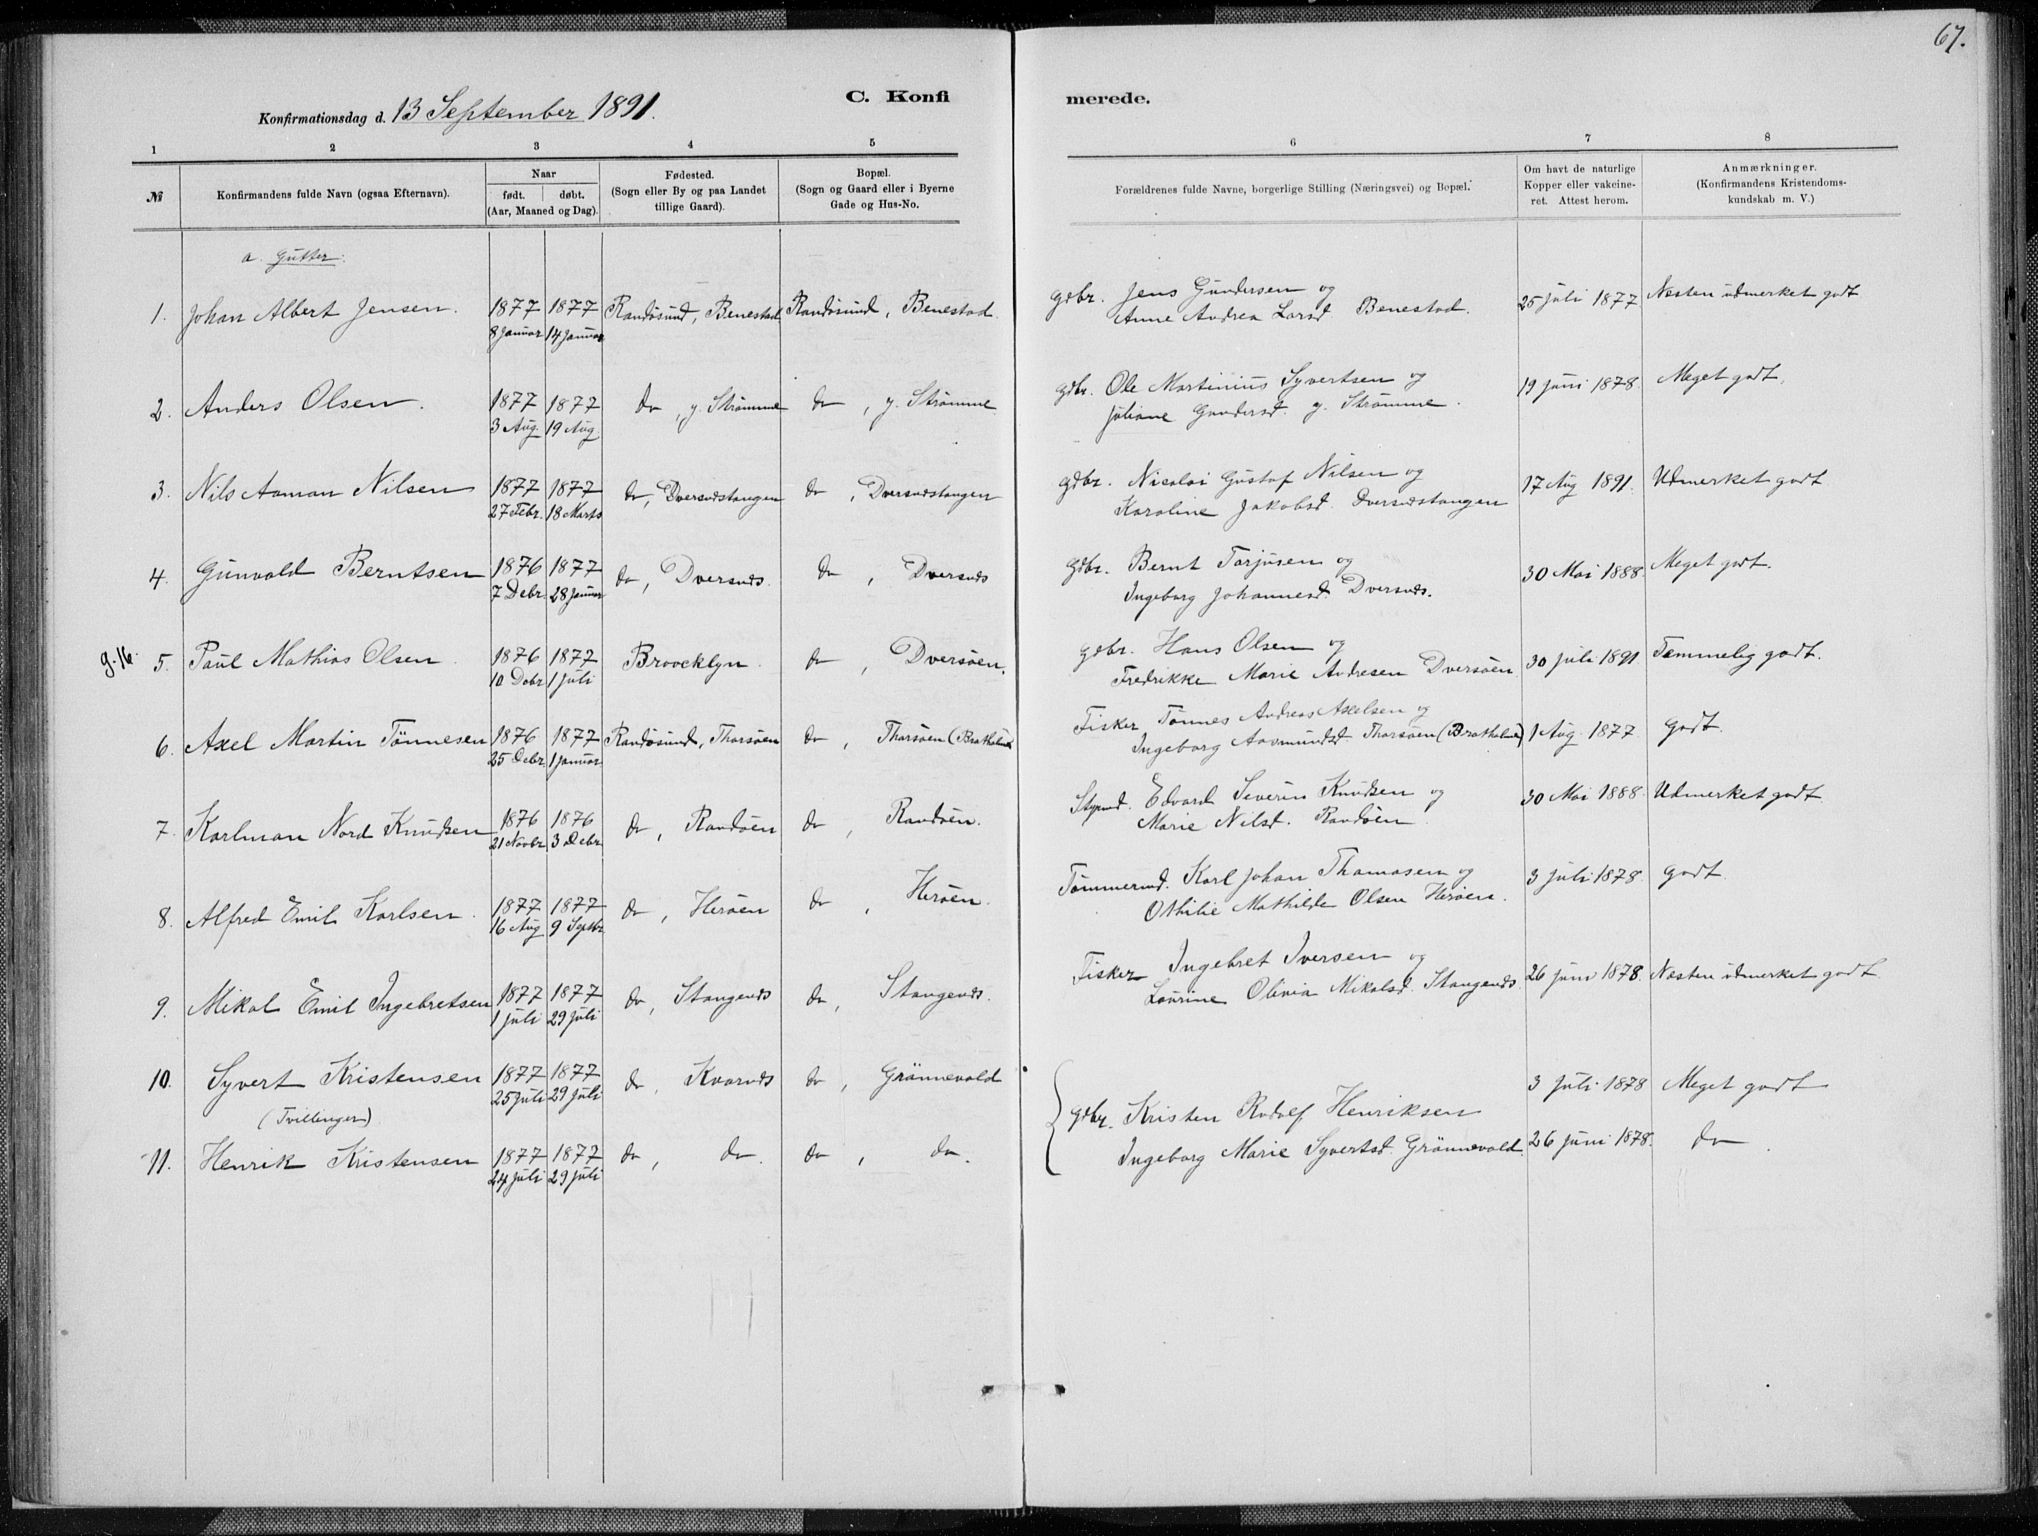 67.
C. Konfi merede.
Konfirmationsdag d. 13 September 1891.
1 2 3 4 5 6 7 8
№ Konfirmandens fulde Navn (ogsaa Efternavn). Naar født. døbt. (Aar, Maaned og Dag). Fødested. (Sogn eller By og paa Landet tillige Gaard). Bopæl. (Sogn og Gaard eller i Byerne Gade og Hus-No. Forældrenes fulde Navne, borgerlige Stilling (Næringsvei) og Bopæl. Om havt de naturlige Kopper eller vakcineret. Attest herom. Anmærkninger. (Konfirmandens Kristendomskundskab m. V.)
a. Gutter.
1. Johan Albert Jensen. 1877 1877 Randøsund, Benestad Randøsund, Benestad. Gdbr. Jens Gundersen og 25 juli 1877 Næsten udmerket godt
8 Januar 14 Januar Anne Andrea Larsd. Benestad.
2. Anders Olsen. 1877 1877 do, y. Strømme do, y. Strømme gdbr. Ole Martinius Syvertsen og 19 juni 1878. Meget godt.
3 Aug. 19 Aug. Juliane Gundersd. y. Strømme.
3. Nils Aaman Nilsen 1877 1877 do, Dversnæstangen do, Dversnæstangen gdbr. Nicolai Gustaf Nilsen og 17 Aug 1891. Udmerket godt
27 Febr. 18 Marts Karoline Jakobsd. Dversnæstangen
4. Gunvald Berntsen 1876 1877 do, Dversnes. do, Dversnes Gdbr. Bernt Tarjusen og 30 Mai 1888. Meget godt.
7 Debr. 28 Januar Ingeborg Johannesd. Dversnes.
g. 16. 5. Paul Mathias Olsen. 1876 1877 Broocklyn. do, Dversøen. gdbr. Hans Olsen og 30 juli 1891 Temmelig godt.
10 Debr 1 juli Fredrikke Marie Andresen Dversøen
6. Axel Martin Tønnesen 1876 1877 Randøsund, Thorsøen do, Thorsøen (Bratholmen) Fisker Tønnes Andreas Axelsen og 1 Aug. 1877 Godt.
25 Debr. 1 januar Ingeborg Aasmundsd. Thorsøen (Bratholmen)
7. Karlman Nord Knudsen 1876 1876 do, Randøen do, Randøen. Styrmd. Edvard Severin Knudsen og 30 Mai 1888. Udmerket godt
21 Novbr. 3 Debr. Marie Nilsd. Randøen.
8. Alfred Emil Karlsen. 1877 1877 do, Herøen do, Herøen. Tømmermd. Karl Johan Thomasen og 3 juli 1878. Godt.
16 Aug 9 Septbr. Othilie Mathilde Olsen Herøen.
9. Mikal Emil Ingebretsen 1877 1877 do, Stangenes do, Stangenes. Fisker Ingebret Iversen og 26 juni 1878. Næsten udmerket godt.
1 juli 29 juli Laurine Olivia Mikalsd. Stangenes.
10. Syvert Kristensen 1877 1877 do, Kvarnes do, Grønnevold gdbr. Kristen Rudolf Henriksen 3 juli 1878 Meget godt
25 juli 29 juli
(Tvillinger)
11. Henrik Kristensen 1877 1877 do, do. do, do. Ingeborg Marie Syvertsd. Grønnevold. 26 juni 1878. do.
24 juli 29 juli